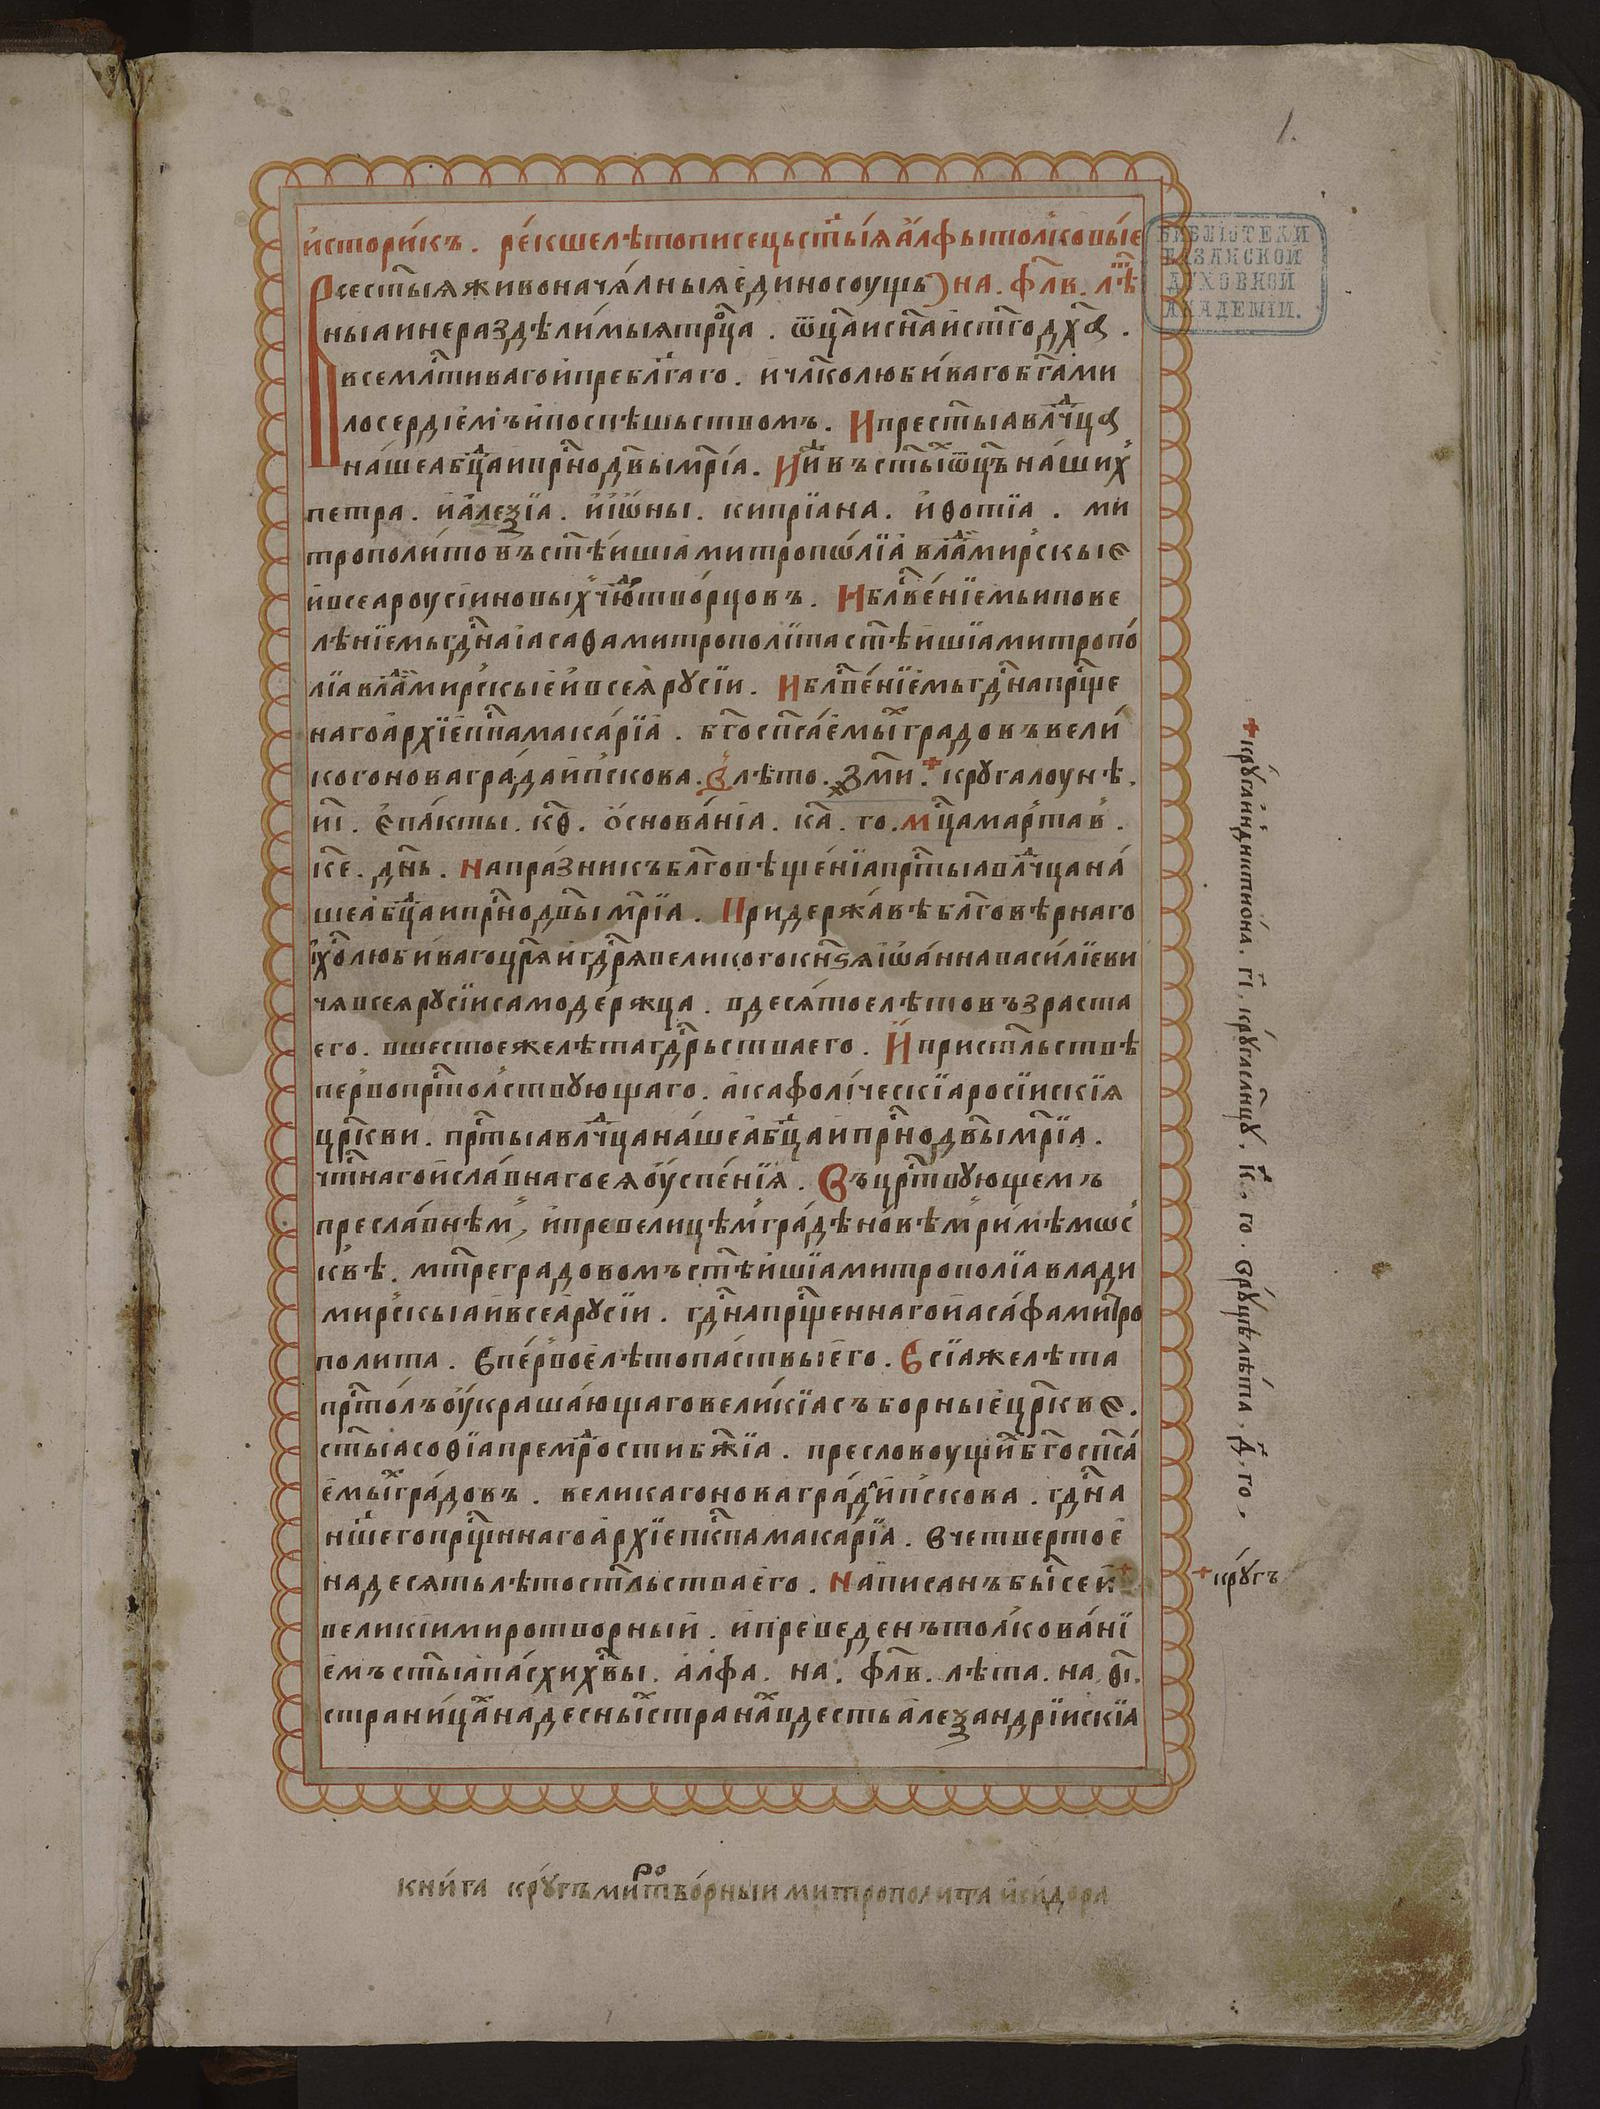 1.
БИБЛІОТЕКИ
КАЗАНСКОЙ
ДУХОВНОЙ
АКАДЕМІИ.
и҆стори́къ . ре́кше лѣтописець ст҃ы́ѧ а҆́лфы толко́выѥ
Всест҃ыѧ живоначѧ́лныѧ є҆диносоущь) на . фл҃в . лѣ҃т
ныа и нераздѣли́мыѧ тр҇оца . ѿц҃а и сн҃а и҆ ст҃го дх҃а .
всемлⷭ҇тиваго и҆ пребл҃гаго . и҆ чл҃колюби́ваго бг҃а ми
лосердїемъ и҆ поспѣшьствомъ . И прест҃ыа влⷣчца
на́шеа бцⷣа и прⷭ҇нодв҃ы мр҃їа . И҆ иⷤ въ ст҃ыⷯ ѿц҃ъ на́шиⷯ
петра . и҆ а҆леѯїа . и҆ і҆ѡ҆ны . кипрїана . и҆ ѳотїа . ми
трополи́товъ ст҃ѣ́ишїа митропо́лїа влаⷣмирскыє
и҆ всеа роусі́и новыⷯ чюⷣтво́рцовъ . И бл҃ве́нїемь и пове
лѣнїемь гдⷭ҇на іасафа митрополита ст҃ѣ́ишїа митропо́
лїа влаⷣмирскыє и҆ всеѧ̀ рꙋсїи . И бл҃ве́нїемь гдⷭ҇на прⷭ҇ще
наго а҆рхїеп҃па мака́рїа . бг҃оспса́емыⷯ градовъ вели́
кого новагра́да и҆ пскова . В лѣто . ҂зм҃и . крꙋга лоунѣ .
и҃і . є҆па́кты . кѳ҃ . ѻ҆снова́нїа . ка҃ . го . мцⷭ҇а марта в .
ке҃ . дн҃ь . на пра́зникъ бл҃говѣще́нїа прⷭ҇тыа влⷣчца на́
шеа бцⷣа и прⷭ҇нодв҃ы мр҃їа . При держа́вѣ бл҃говѣ́рнаго
и҆ хⷭ҇олюби́ваго цр҃ѧ и҆ гдⷭ҇рѧ великого кнѕ҃ѧ і҆ѡа́нна васи́лїеви
чѧ всеѧ рꙋсїи самоде́ржца . в десѧ́тое лѣто въздраста
его . в шестое же лѣта гдⷭ҇рьства его . И҆ при ст҃льствѣ
первопрⷭ҇толствꙋющаго . а҆ кафоли́ческїа росїискїѧ
цр҃кви . прⷭ҇тыа влⷣчца на́шеа бцⷣа и прⷭ҇нодв҃ы мр҃їа .
чⷭ҇тнаго и҆ сла́внаго еѧ оу҆спе́нїѧ . Въ црⷭ҇твꙋющемъ
пресла́внѣмъ , и҆ превели́цѣмъ гра́дѣ но́вѣмъ ри́мѣ мос
квѣ . мт҃ре градовомъ ст҃ѣ́ишїа митрополїа влади
мирскыа и҆ всеа̀ рꙋсїи . гдⷭ҇на прⷭ҇щеннаго и҆аса́фа митро
полита . В пе́рвоє лѣто па́ствы є҆го . В сїа же лѣта
прⷭ҇то́лъ оу҆краша́ющаго вели́кїа съборныє цр҃квє .
ст҃ыа софїа премⷣрости бж҃їа . пресловоущиⷯ бг҃оспса́
є҆мыⷯ гра́довъ . великаго новагра́да и҆ пскова . гдⷭ҇на
нш҃его прⷭ҇щннаго а҆рхїепⷭ҇кпа мака́рїа . В четвертоє
надесѧть лѣто ст҃льства є҆го . Написанъ быⷭ҇ сеи +
великїи миротворный . и҆ преведенъ толкова́нї
є҆мъ ст҃ыа па́схи хв҃ы . а҆лфа . на . фл҃в . лѣта . на . ѳ҃і .
страни́цаⷯ на десныⷯ странаⷯ в десть а҆леѯандрі́искїѧ
+ крꙋга индиктио́на . г҃і . крꙋга слн҃цꙋ . к҃ . го . врꙋцѣлѣ́та . д҃ . го .
+ крꙋгъ
кни́га крꙋгъ миротво́рныи митрополита и҆си́дора